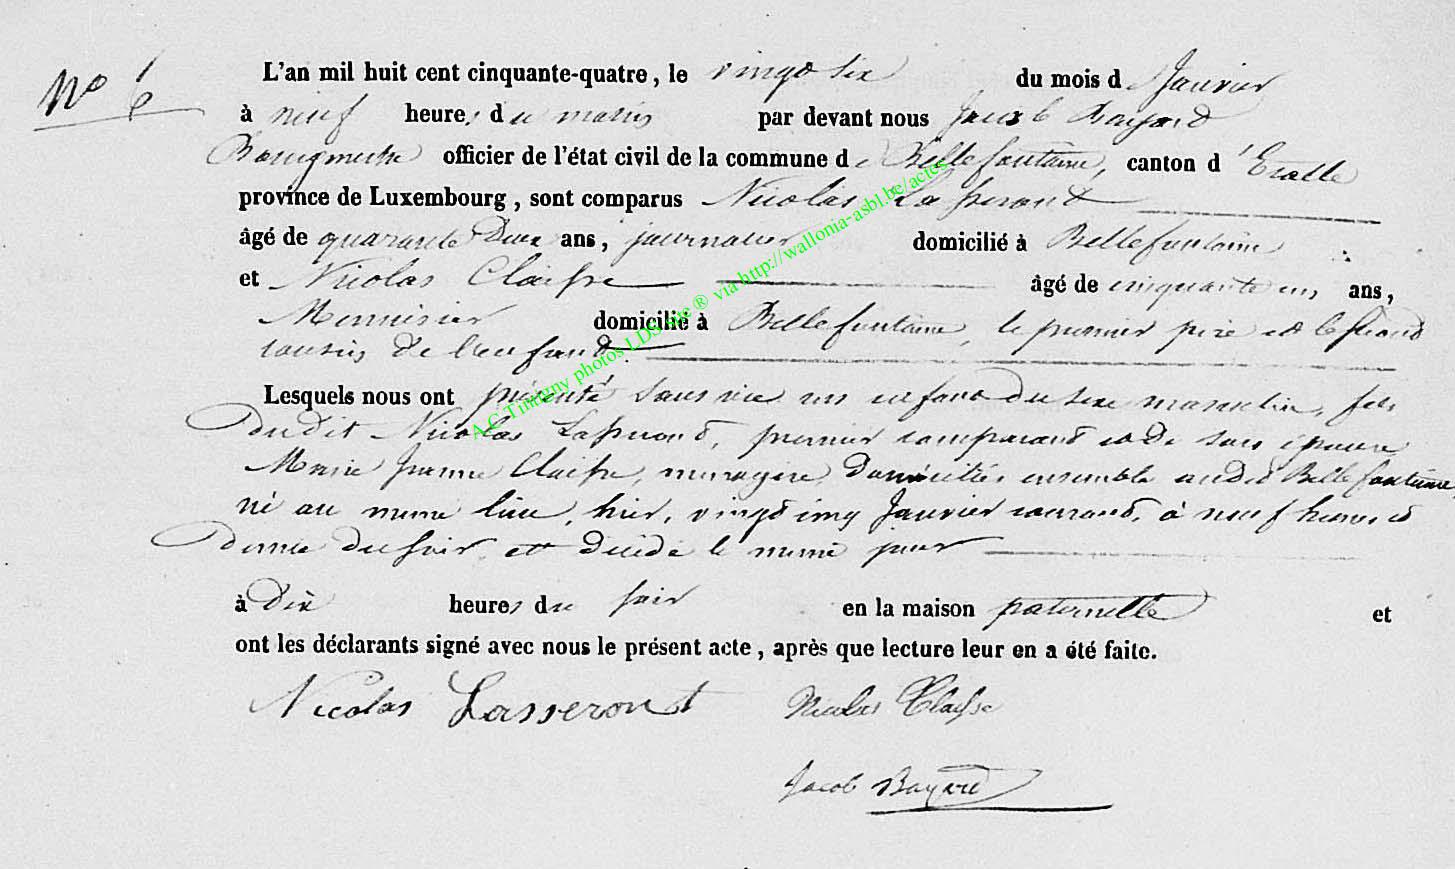 N° 6
L'an mil huit cent cinquante-quatre, le vingt six du mois de Janvier
à neuf heures du matin par devant nous Jacob Bayard
Bourgmestre officier de l'état civil de la commune de Bellefontaine, canton d'Etalle
province de Luxembourg, sont comparus Nicolas Lasseront
âgé de quarante deux ans, journalier domicilié à Bellefontaine
et Nicolas Claisse âgé de cinquante un ans,
Menuisier domicilié à Bellefontaine, le premier père et le second
cousin de l'enfant.
Lesquels nous ont présenté sans vie un enfant du sexe masculin, fils
dudit Nicolas Lasseront, premier comparant et de son épouse
Marie Jeanne Claisse, menagère, domiciliés ensemble audit Bellefontaine
né au meme lieu, hier, vingt cinq Janvier courant, à neuf heures et
demie du soir, et décédé le meme jour
à dix heures du soir en la maison paternelle et
ont les déclarants signé avec nous le présent acte, après que lecture leur en a été faite.
Nicolas Lasseront Nicolas Claisse
Jacob Bayard
A.C Tintigny photos LDS site ® via http://wallonia-asbl.be/actes